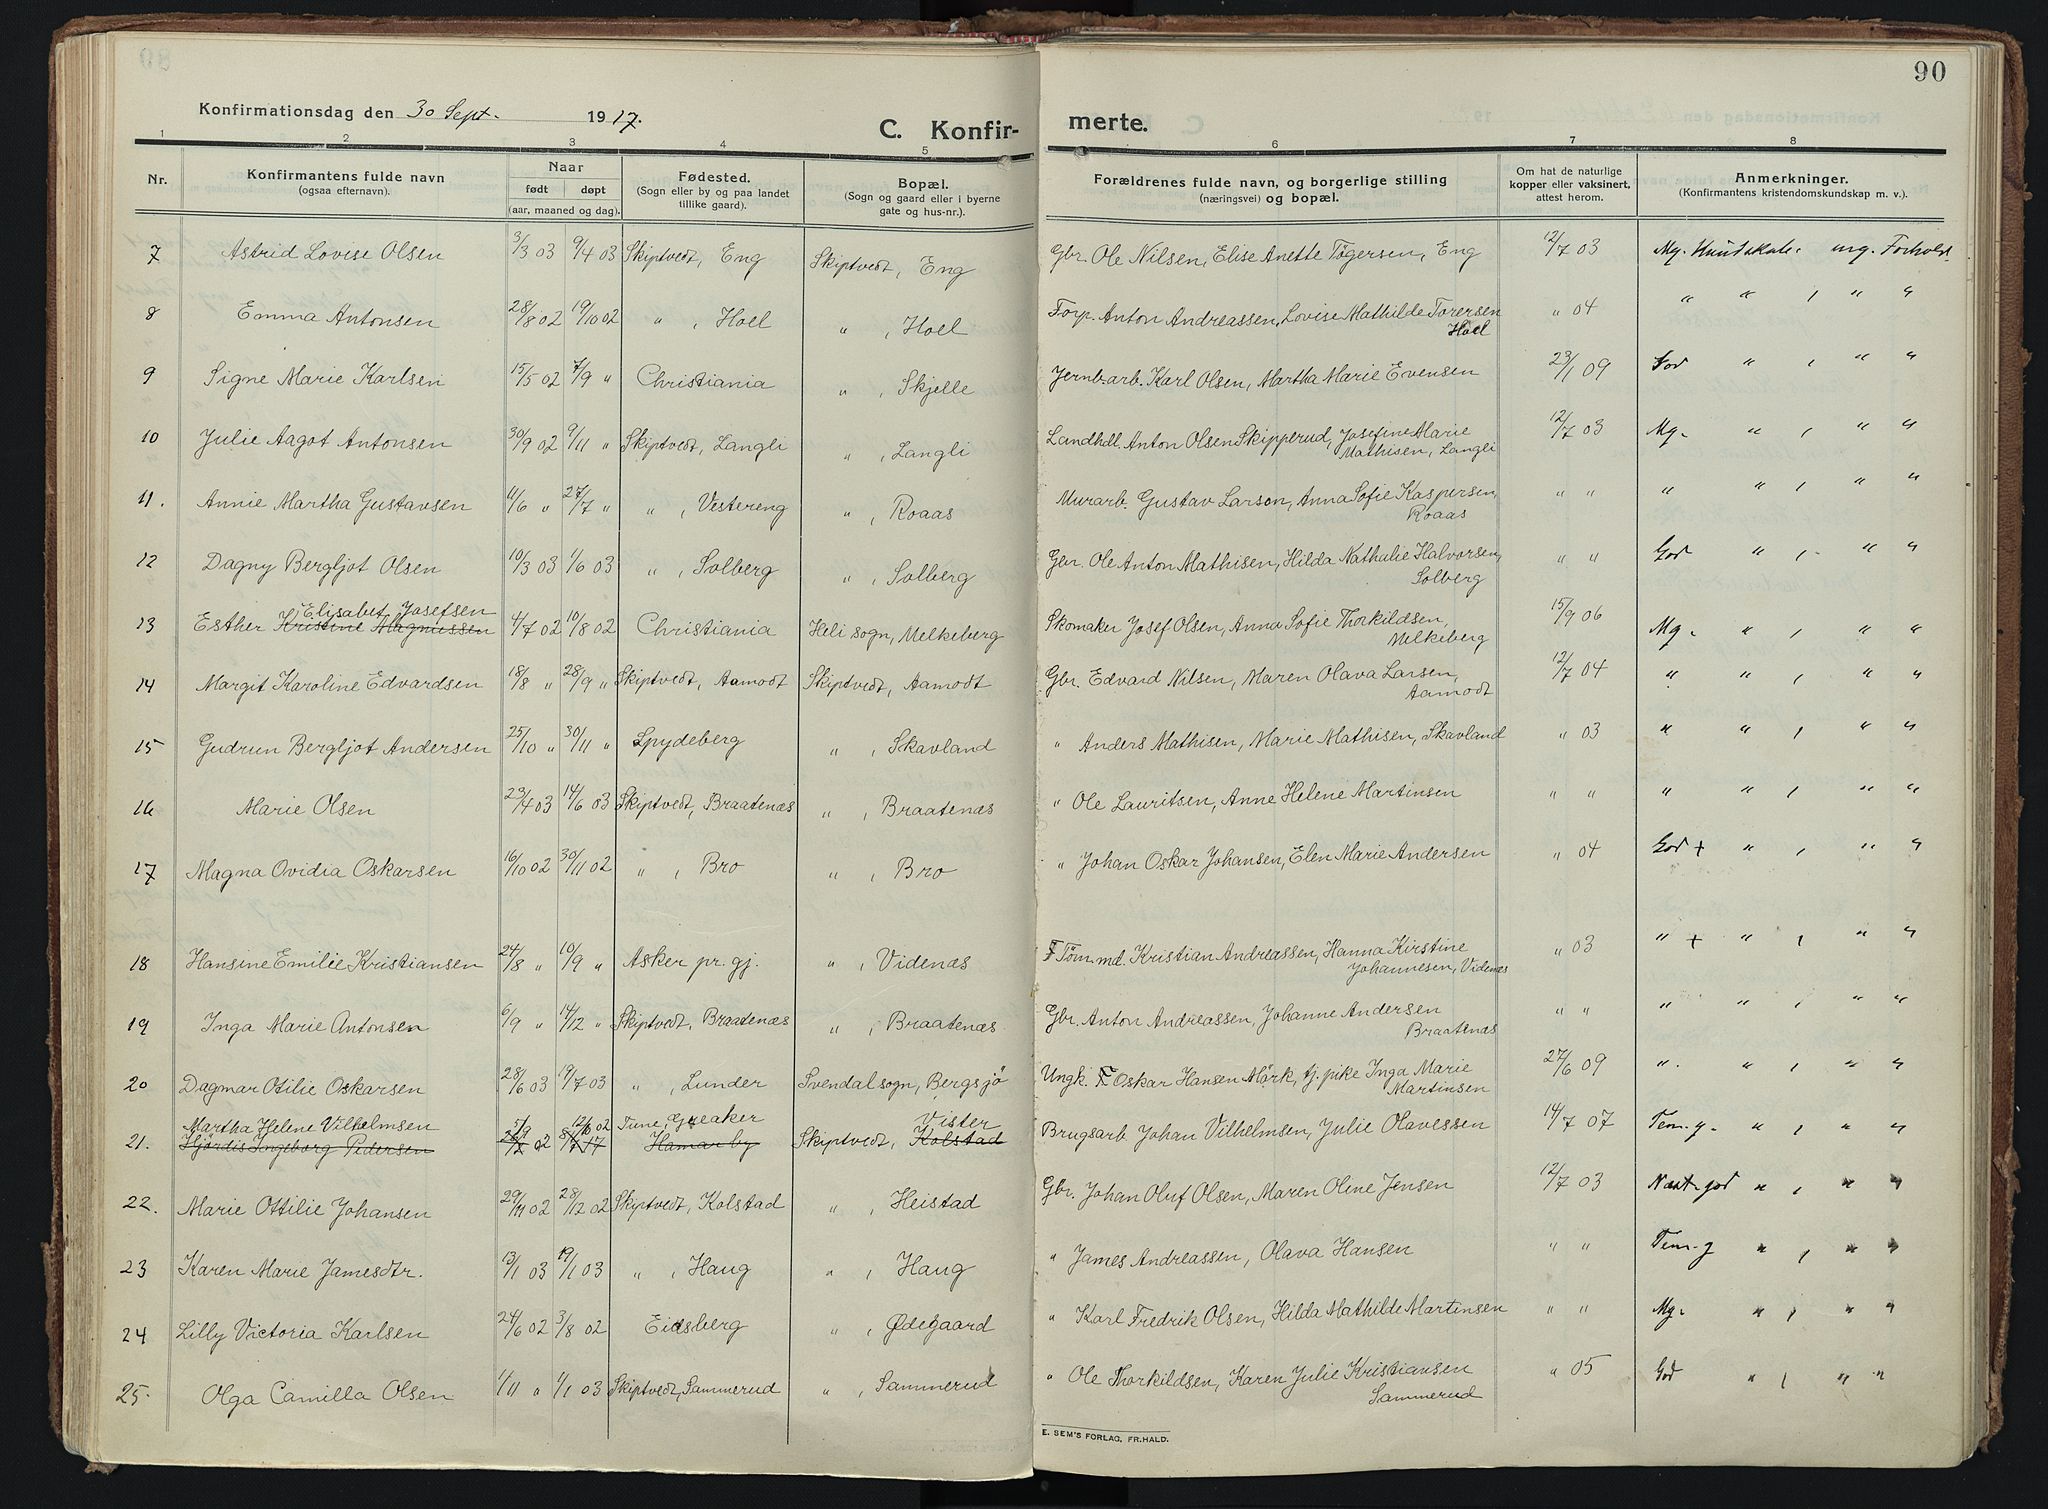 90
Konfirmationsdag den 30 Sept. 1917.
C. Konfirmerte.
1 2 3 4 5 6 7 8
Nr. Konfirmantens fulde navn (ogsaa efternavn). Naar født døpt (aar, maaned og dag). Fødested. (Sogn eller by og paa landet tillike gaard). Bopæl. (Sogn og gaard eller i byerne gate og hus-nr.). Forældrenes fulde navn, og borgerlige stilling (næringsvei) og bopæl. Om hat de naturlige kopper eller vaksinert, attest herom. Anmerkninger. (Konfirmantens kristendomskundskap m. v.).
7 Astrid Lovise Olsen 3/3 03 9/4 03 Skiptvedt, Eng Skiptvedt, Eng Gbr. Ole Nilsen, Elise Anette Tögersen, Eng 12/7 03 Mg. Kundskab. mg. Forhold.
8 Emma Antonsen 28/8 02 19/10 02 " , Hoel " , Hoel Forp. Anton Andreassen, Lovise Mathilde Torersen Hoel " 04 " " , " "
9 Signe Marie Karlsen 15/5 02 7/9 " Christiania " , Skjelle Jernb.arb. Karl Olsen, Martha Marie Evensen 23/1 09 God " , " "
10 Julie Aagot Antonsen 30/9 02 9/11 " Skiptvedt, Langli " , Langli Landhdl. Anton Olsen Skipperud, Josefine Marie Mathisen, Langli 12/7 03 Mg. " , " "
11. Annie Martha Gustavsen 11/6 " 27/7 " " , Vestereng " , Roaas Murarb. Gustav Larson, Anna Sofie Kaspersen, Roaas " " " " , " "
12 Dagny Bergljot Olsen 10/3 03 1/6 03 " , Solberg " , Solberg Gbr. Ole Anton Mathisen, Hilda Nathalie Halvorsen, Solberg " " God " , " "
13 Esther Kristine Magnussen Elisabet Josefsen 4/7 02 10/8 02 Christiania Heli sogn, Melkeberg Skomaker Josef Olsen, Anna Sofie Thorkildsen, Melkeberg 15/9 06 Mg. " , " "
14 Margit Karoline Edvardsen 18/8 " 28/9 " Skiptvedt, Aamodt Skiptvedt, Aamodt Gbr. Edvard Nilsen, Maren Olava Larsen, Aamodt 12/7 04 " " , " "
15 Gudrun Bergljot Andersen 25/10 " 30/11 " Spydeberg " , Skavland " Anders Mathisen, Marie Mathisen, Skavland " 03 " " , " "
16 Marie Olsen 23/4 03 14/6 03 Skiptvedt, Braatenæs " , Braatenæs " Ole Lauritsen, Anne Helene Martinsen " " " " , " "
17 Magna Ovidia Oskarsen 16/10 02 30/11 02 " , Bro " , Bro " Johan Oskar Johansen, Elen Marie Andersen " 04 God + " , " "
18 Hansine Emilie Kristiansen 24/8 " 10/9 " Asker pr. gj. " , Videnæs Töm.md. Kristian Andreassen, Hanna Kirstine Johannesen, Videnæs " 03 " + " , " "
19 Inga Marie Antonsen 6/9 " 14/12 " Skiptvedt, Braatenæs " , Braatenæs Gbr. Anton Andreassen, Johanne Andersen Braatenæs " " " " , " "
20 Dagmar Otilie Oskarsen 28/6 03 19/7 03 " , Lunder Svendal sogn, Bergsjö Ungk. F Oskar Hansen Mörk, tj. pike Inga Marie Martinsen 27/6 09 " " , " "
Martha Helene Vilhelmsen 5/9 12/10 02 Tune, Greaker Vister
21. Hjördis Ingeborg Pedersen 02 Hamar by Skiptvedt, Kolstad Brugsarb. Johan Vilhelmsen, Julie Olavessen 14/7 07 Tem. g. " , " "
22. Marie Ottilie Johansen 29/11 02 28/12 02 Skiptvedt, Kolstad " , Heistad Gbr. Johan Oluf Olsen, Maren Oline Jensen 12/7 03 Næst. god " , " "
23 Karen Marie Jamesdtr. 13/1 03 19/1 03 " , Haug " , Haug " James Andreassen, Olava Hansen " " Tem. g " , " "
24 Lilly Victoria Karlsen 24/6 02 3/8 02 Eidsberg " , Ødegaard " Karl Fredrik Olsen, Hilda Mathilde Martinsen " " Mg. " , " "
25. Olga Camilla Olsen 1/11 " 1/1 03 Skiptvedt, Sammerud " , Sammerud " Ole Thorkildsen, Karen Julie Kristiansen Sammerud " 05 God " , " "
E. SEM'S FORLAG, FR.HALD.